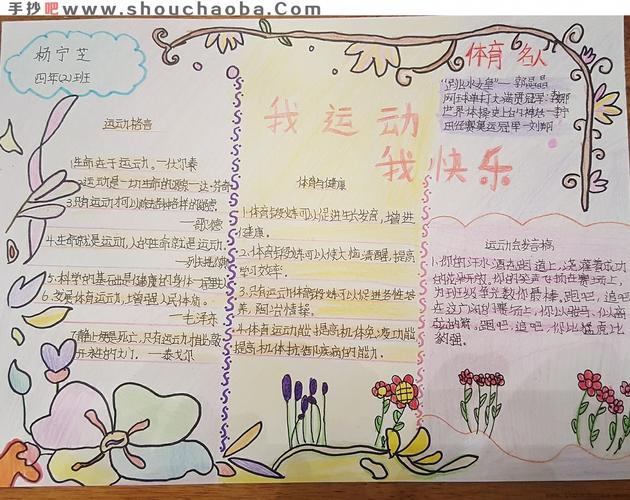 手抄吧www.shouchaoba.com
杨宁芝
四年(2)班
运动格言
1.生命在于运动。—伏尔泰
2.运动是一切生命的源泉—达·芬奇
3.只有运动才可以除去各种各样的疑虑。
—歌德
4.生命就是运动,人的生命就是运动。
—列夫托尔斯泰
5.科学的基础是健康的身体—居里夫人
6.发展体育运动,增强人民体质。
—毛泽东
7.静止便是死亡,只有运动才能敲
开永生的大门。—泰戈尔
我运动
我快乐
体育与健康
1.体育锻炼可以促进生长发育,增进
健康。
2.体育锻炼可以使大脑清醒,提高
学习效率。
3.只有运动体育锻炼可以促进各性培
养,陶冶情操。
4.体育运动能提高机体免疫功能
提高机体抗御疾病的能力。
体育名人
“跳水女皇”—郭晶晶
网球单打大满贯冠军:李娜
世界体操史上的神话—李宁
田径赛奥运冠军—刘翔
运动会发言稿
1.你的汗水洒在跑道上,浇灌着成功
的花朵开放。你的笑声飞扬在赛场上,
为班级争光数你最棒,跑吧,追吧
在这广阔的赛场上,你似骏马,似离
弦的箭。跑吧,追吧,你比虎猛比
豹强。